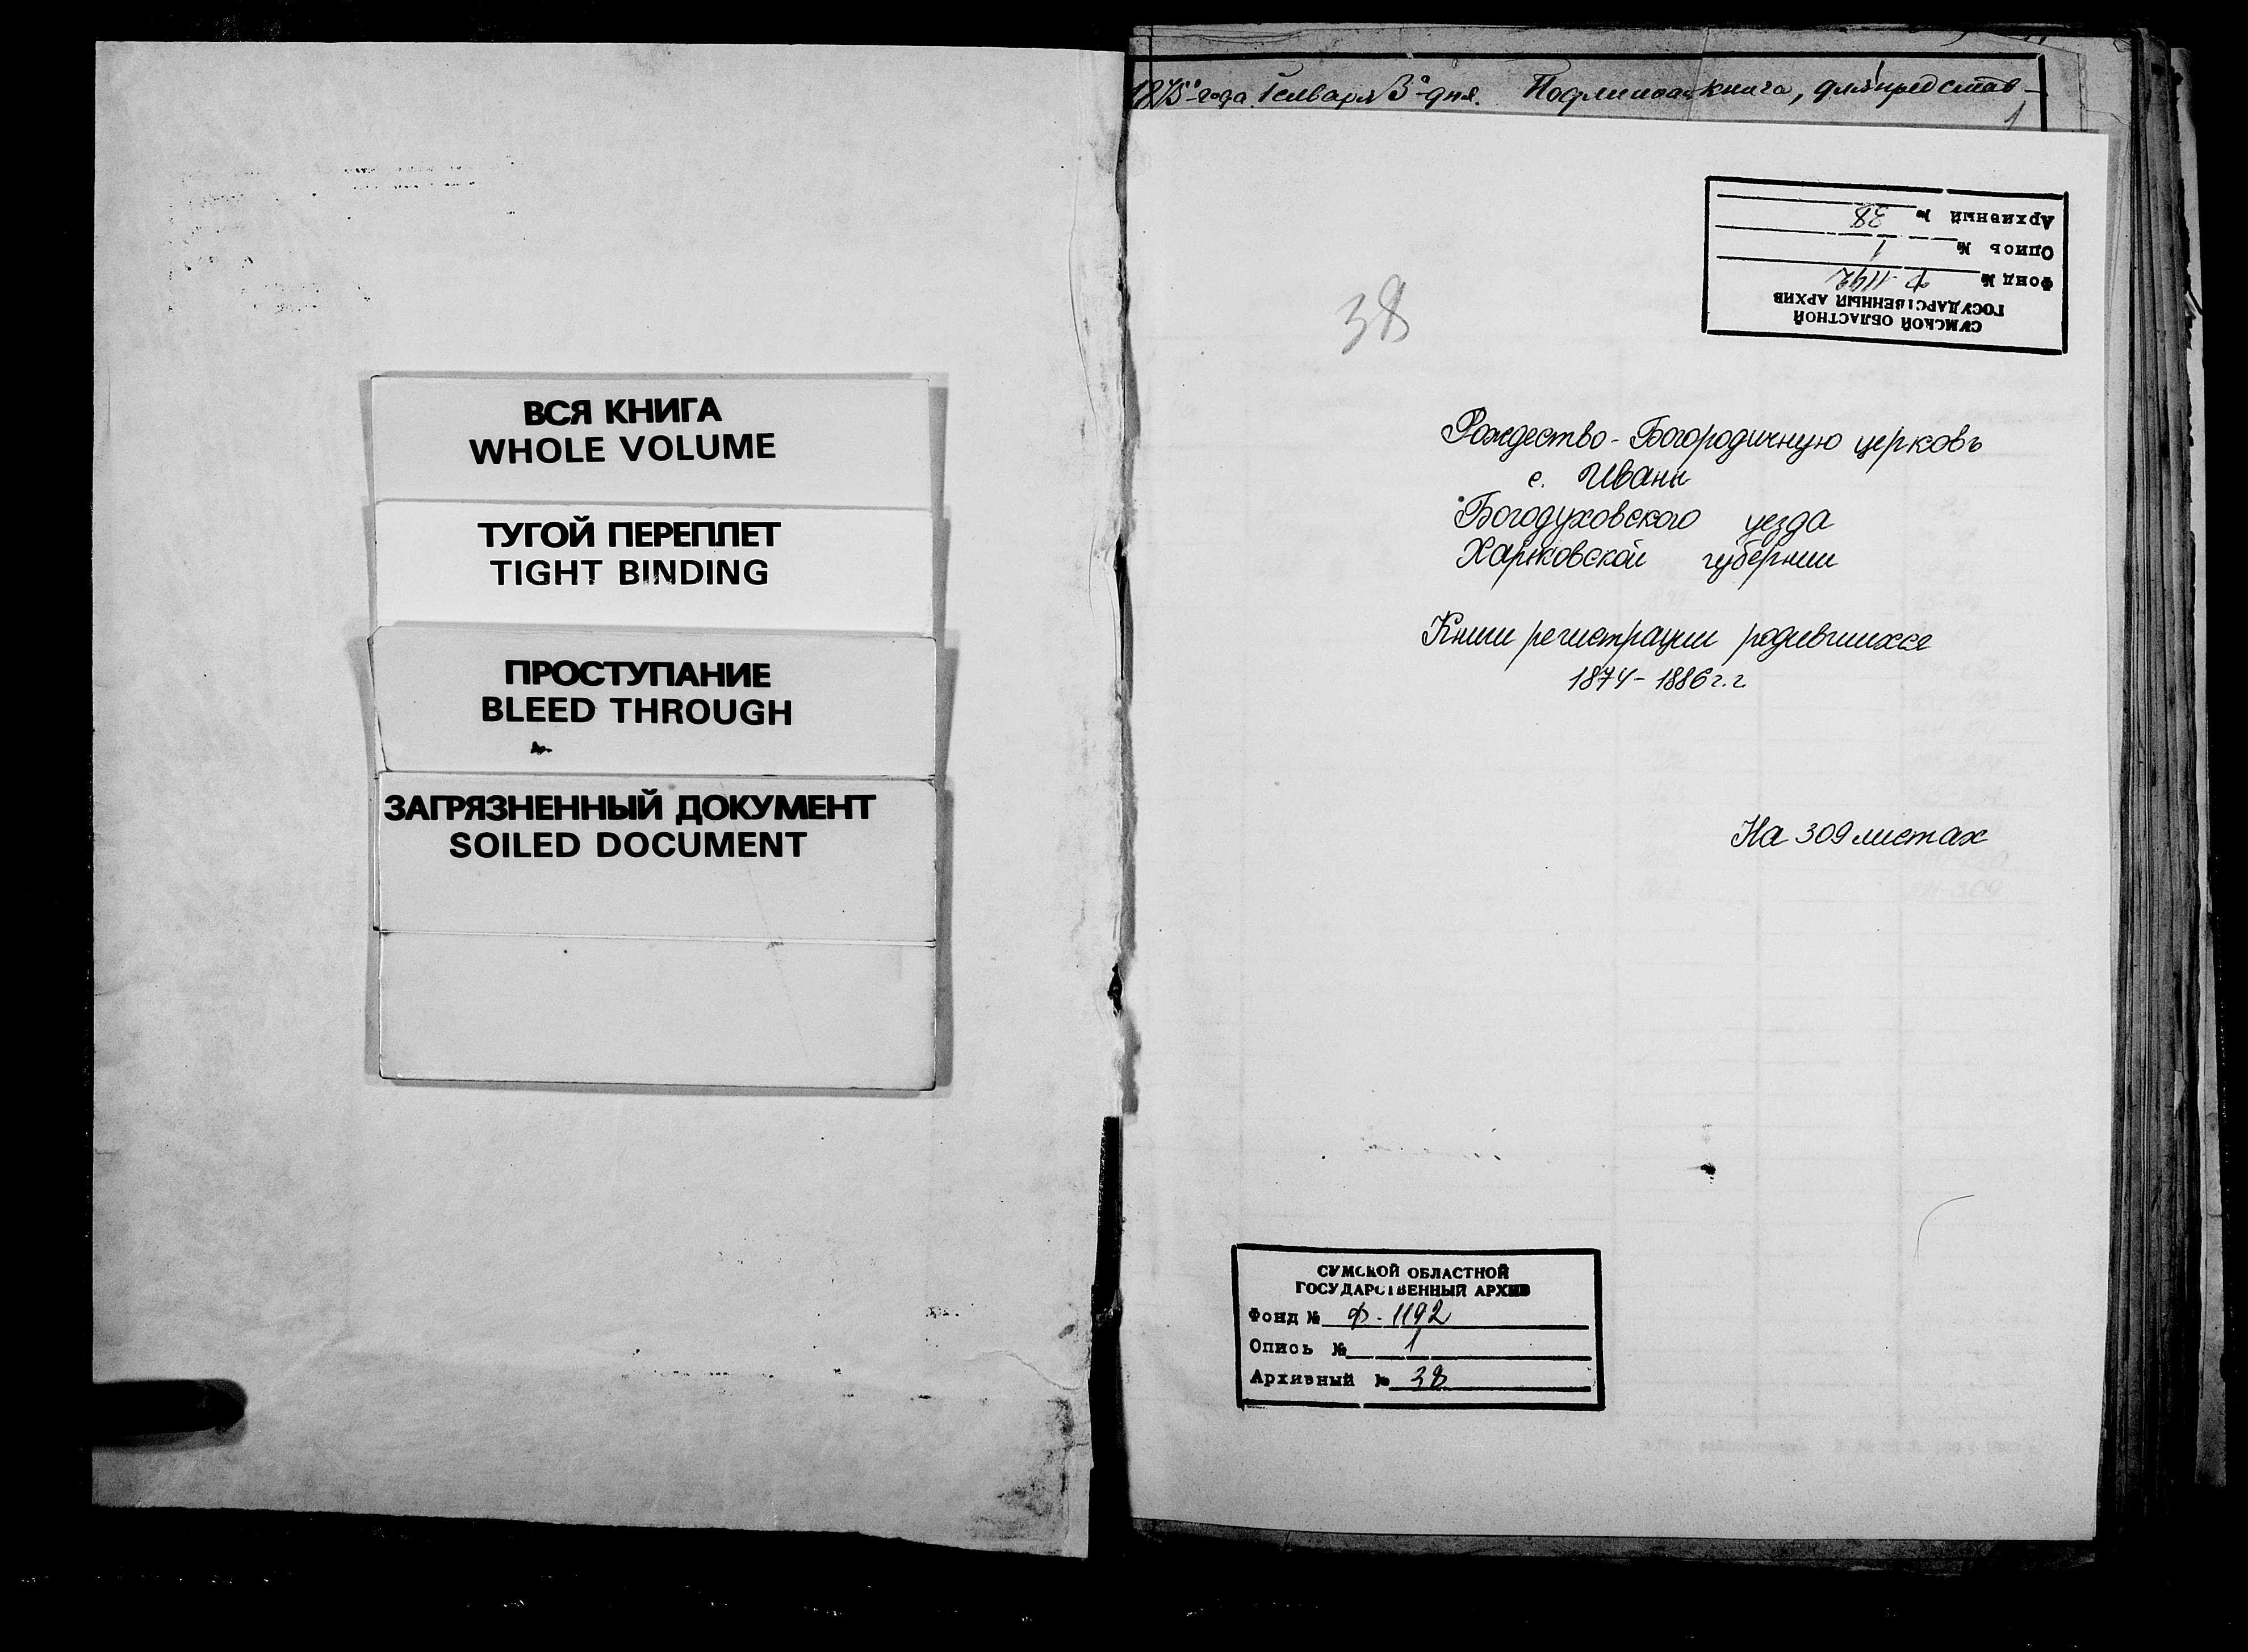 ВСЯ КНИГА
WHOLE VOLUME
ТУГОЙ ПЕРЕПЛЕТ
TIGHT BINDING
ПРОСТУПАНИЕ
BLEED THROUGH
ЗАГРЯЗНЕННЫЙ ДОКУМЕНТ
SOILED DOCUMENT
1875го года Января 3го дня. Подлинная книга, для представ-
1
СУМСКОЙ ОБЛАСТНОЙ
ГОСУДАРСТВЕННЫЙ АРХИВ
Фонд № Ф-1192
Опись № 1
Архивный № 38
38
Рождество-Богородичную церковь
с. Иваны
Богодуховского уезда
Харьковской губернии
Книги регистрации родившихся
1874-1886 г.г.
На 309 листах
СУМСКОЙ ОБЛАСТНОЙ
ГОСУДАРСТВЕННЫЙ АРХИВ
Фонд № Ф-1192
Опись № 1
Архивный № 38